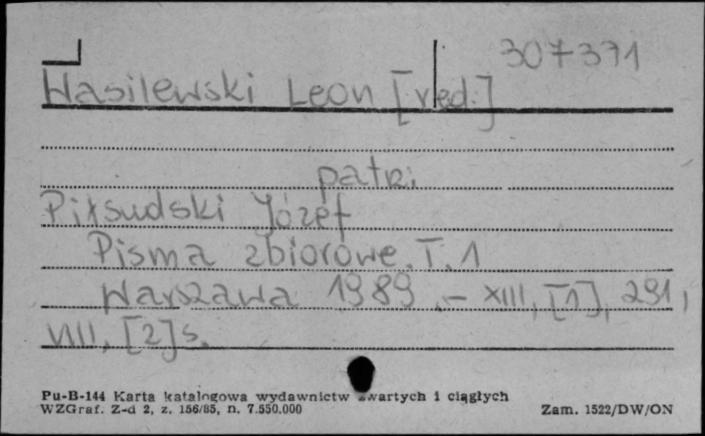 307371
Wasilewski Leon [red.]
patrz:
Piłsudski Józef
Pisma zbiorowe. T. 1
Warszawa 1989 .- XIII, [1], 291,
VIII, [2] s.
Pu-B-144 Karta katalogowa wydawnictw zwartych i ciągłych
WZGraf. Z-d 2, z. 156/85, n. 7.550.000
Zam. 1522/DW/ON